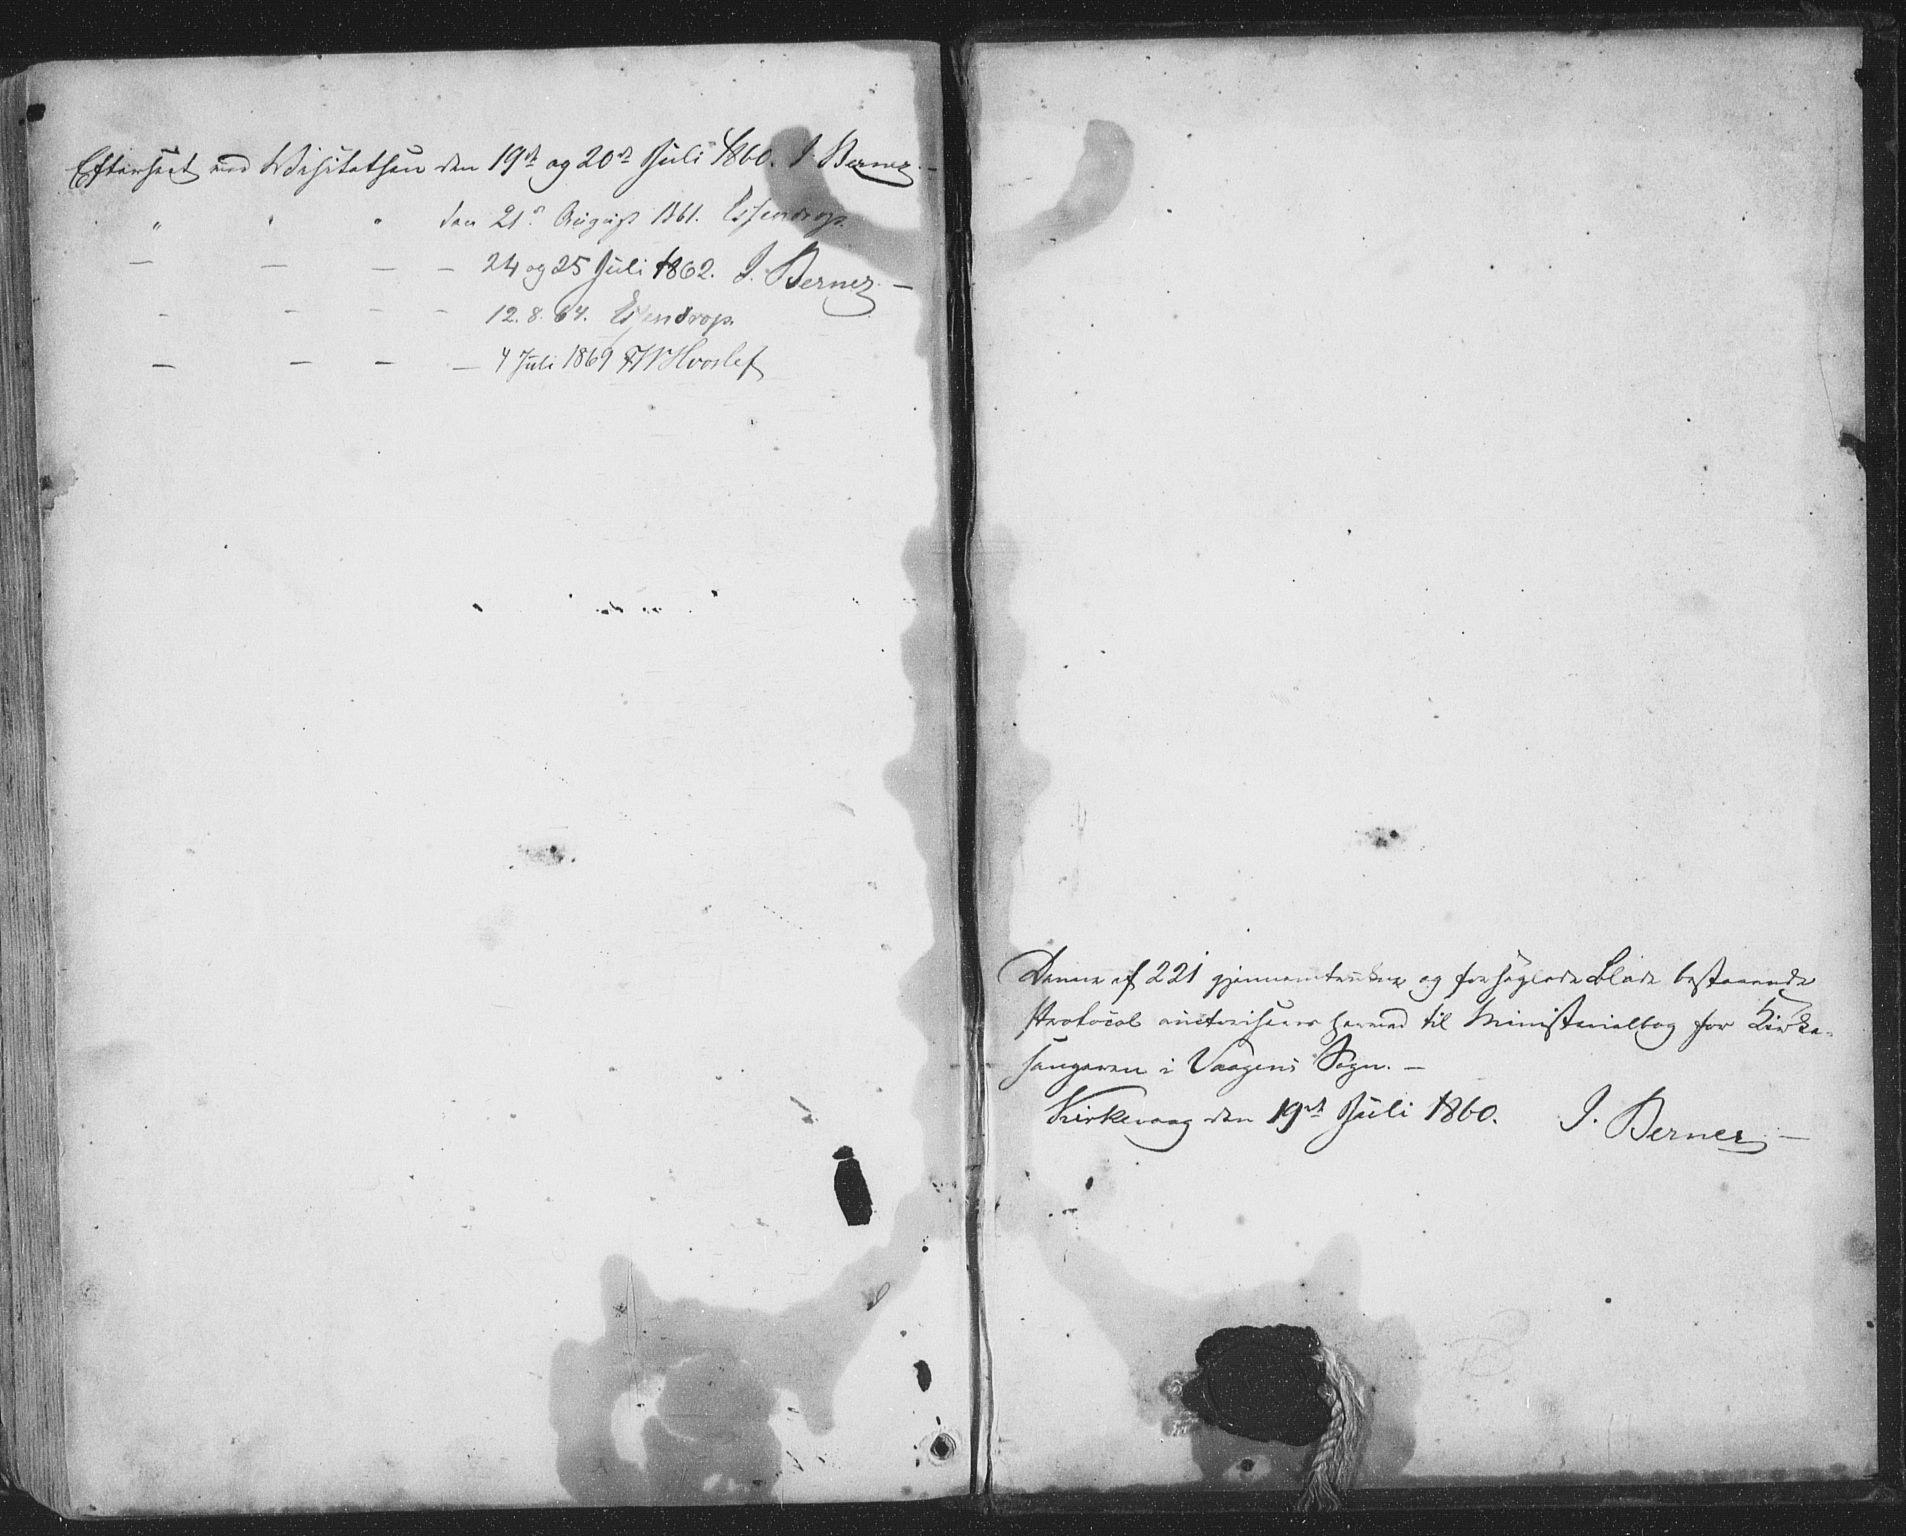 Efterseet ved Visitatsen den 19de og 20de Juli 1860. J. Berner. —
„ „ „ den 21de August 1861. Essendrop.
— — — — 24 og 25 Juli 1862. J. Berner. —
— — — — 12. 8. 64. Essendrop.
— — — — 4 Juli 1869 FW Hvoslef
Denne af 221 gjennemtrukne og forseglede Blade bestaaende
Protocol auctoriseres herved til Ministerialbog for Kirke-
sangeren i Vaagens Sogn. —
Kirkevaag den 19de Juli 1860. J. Berner. —